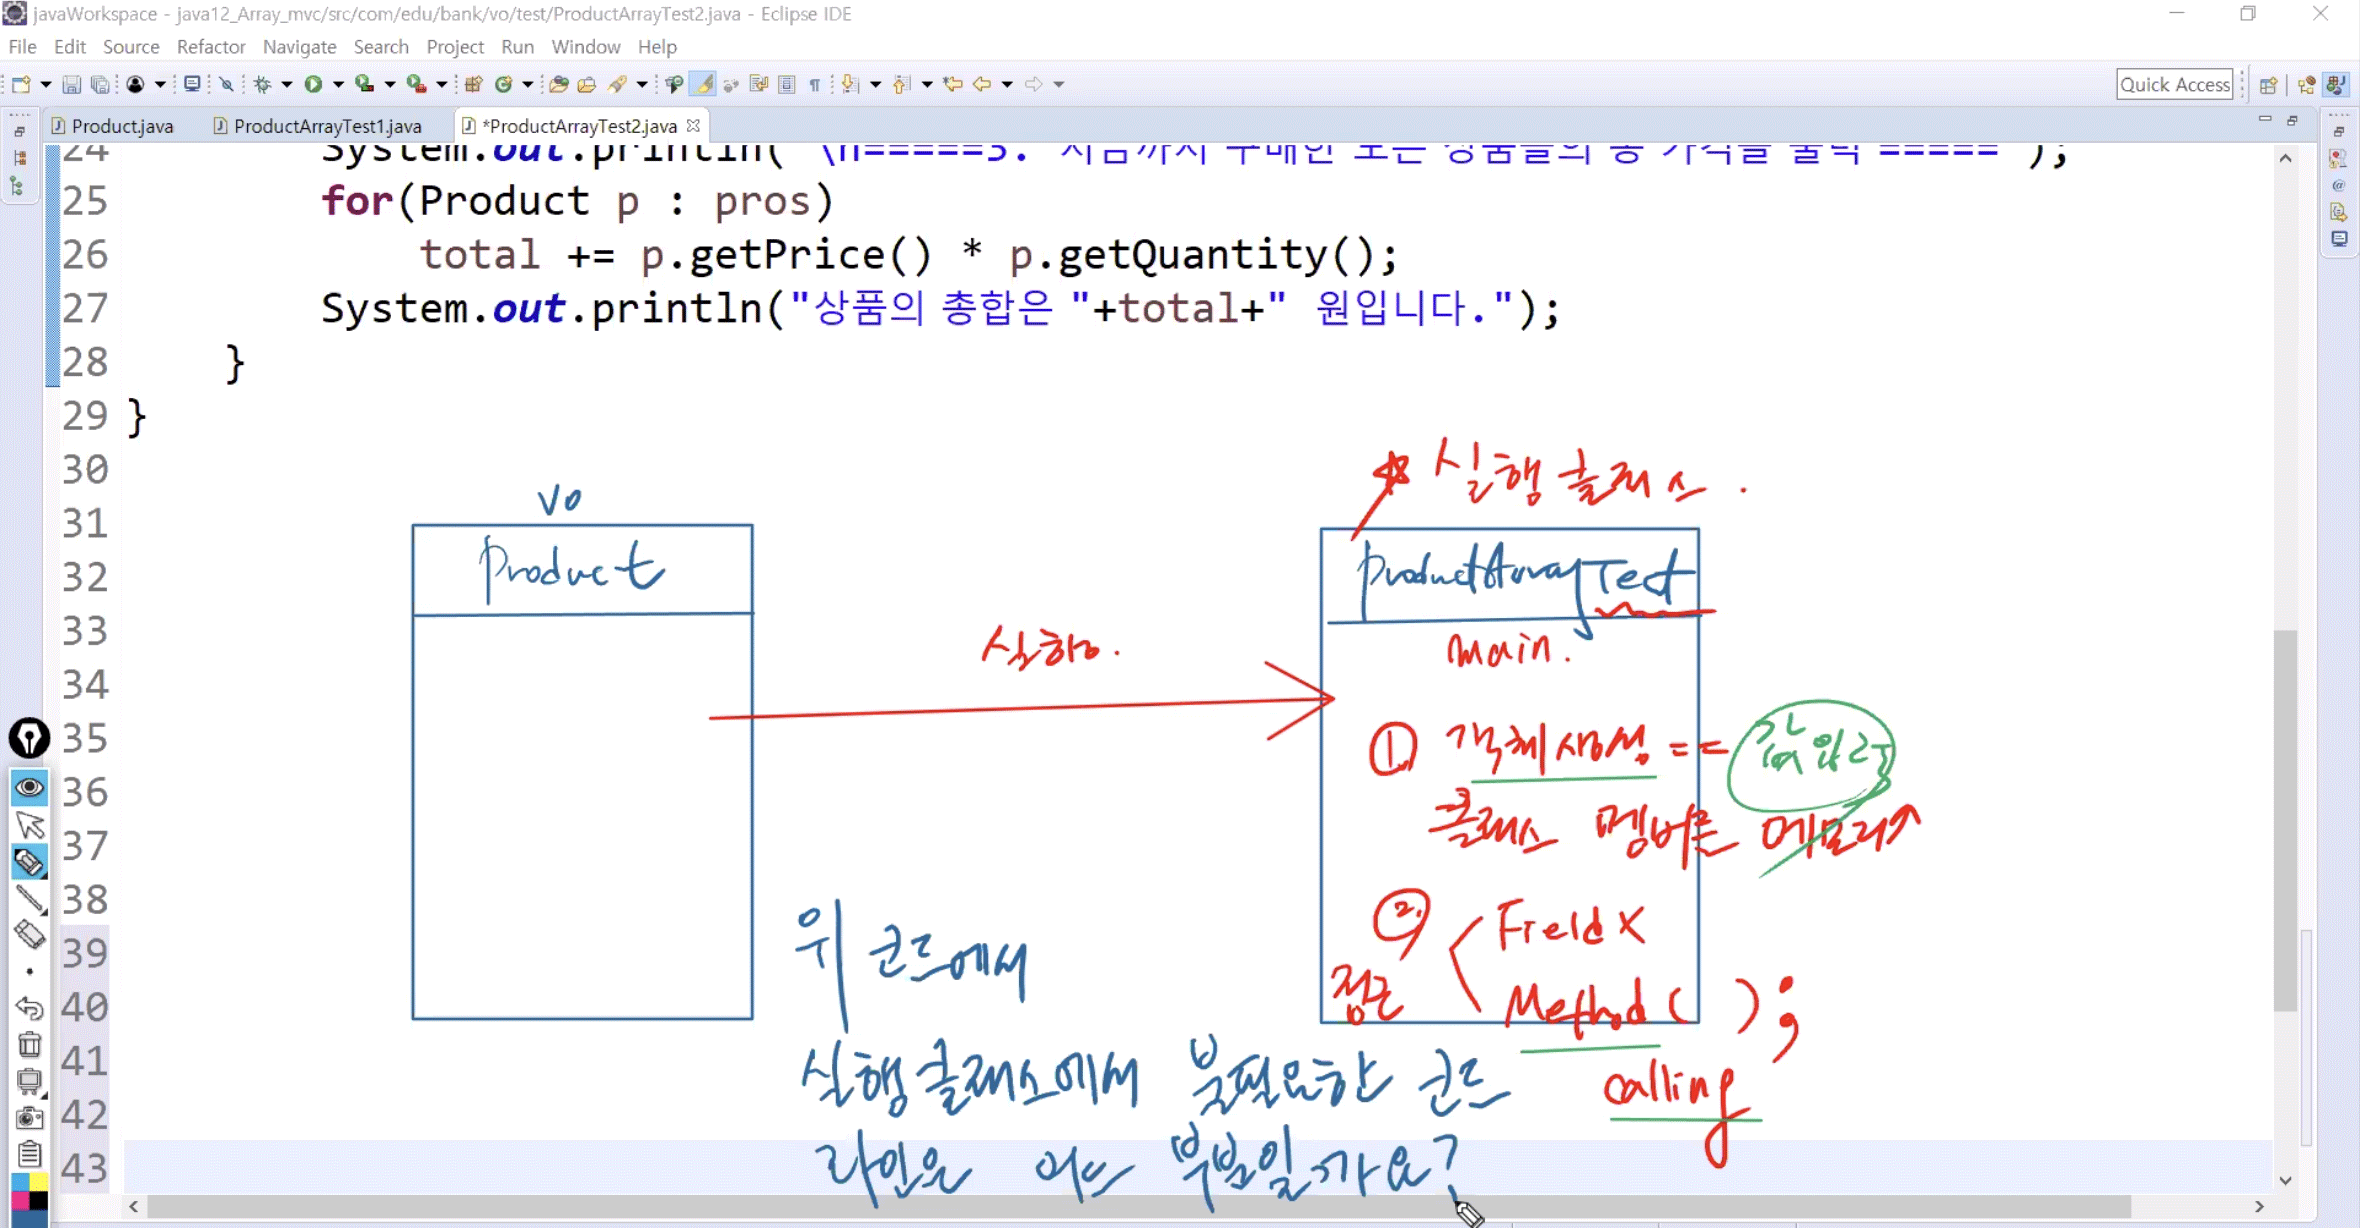 javaWorkspace - java12_Array_mvc/src/com/edu/bank/vo/test/ProductArrayTest2.java - Eclipse IDE
File Edit Source Refactor Navigate Search Project Run Window Help
Quick Access
Product.java ProductArrayTest1.java *ProductArrayTest2.java
24 System.out.println("\n=====3. 지금까지 구매한 모든 상품들의 총 가격을 출력 =====");
25 for(Product p : pros)
26 total += p.getPrice() * p.getQuantity();
27 System.out.println("상품의 총합은 "+total+" 원입니다.");
28 }
29 }
30
31
32
33
34
35
36
37
38
39
40
41
42
43
VO
Product
실행.
실행클래스.
ProductArrayTest
main.
① 객체생성 == 값 입력
클래스 멤버는 메모리↑
② 접근
Field X
Method( );
calling
위 코드에서
실행클래스에서 불필요한 코드
라인은 어느 부분일까요?